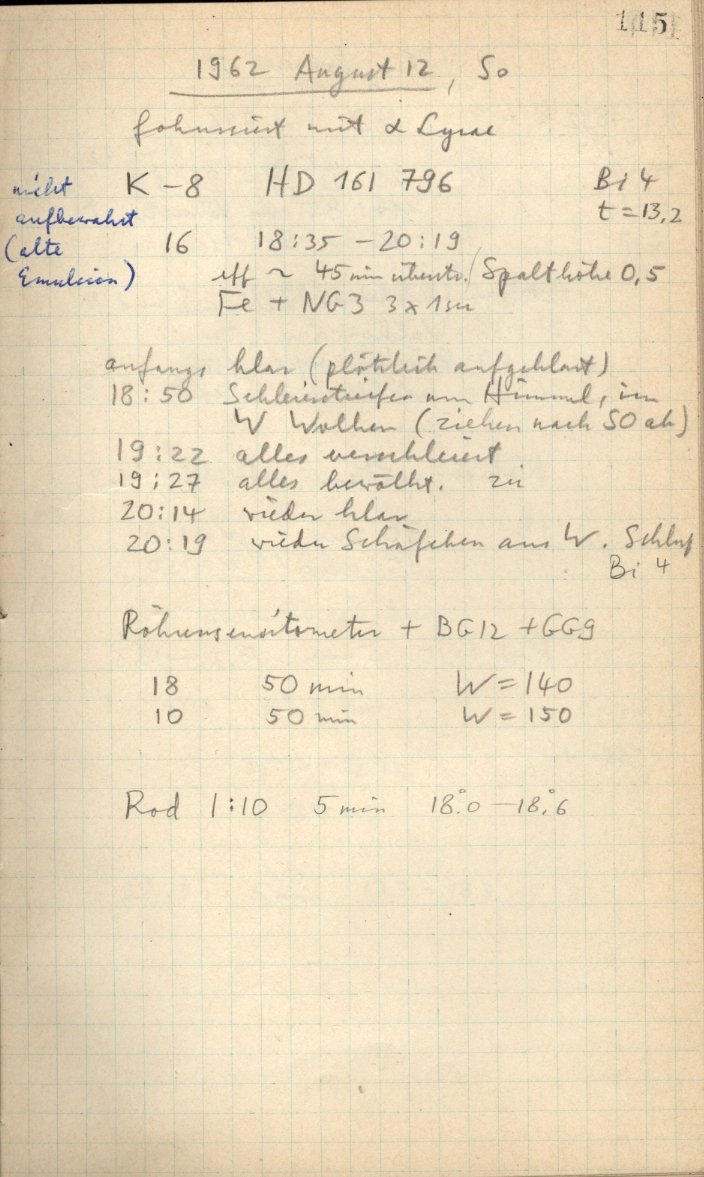 115
1962 August 12, So
fokussiert mit α Lyrae
nicht
aufbewahrt
(alte
Emulsion)
K - 8 HD 161 796 Bi 4
t = 13,2
16 18:35 - 20:19
eff ~ 45 min Spalthöhe 0,5
Fe + NG3 3 x 1 sec
anfangs klar (plötzlich aufgeklart)
18:50 Schleierstreifen am Himmel, im
W Wolken (ziehen nach SO ab)
19:22 alles verschleiert
19:27 alles bewölkt. zu
20:14 wieder klar
20:19 wieder Schäfchen aus W. Schluß
Bi 4
Röhrensensitometer + BG12 + GG9
18 50 min W = 140
10 50 min W = 150
Rod 1:10 5 min 18°.0 - 18°.6